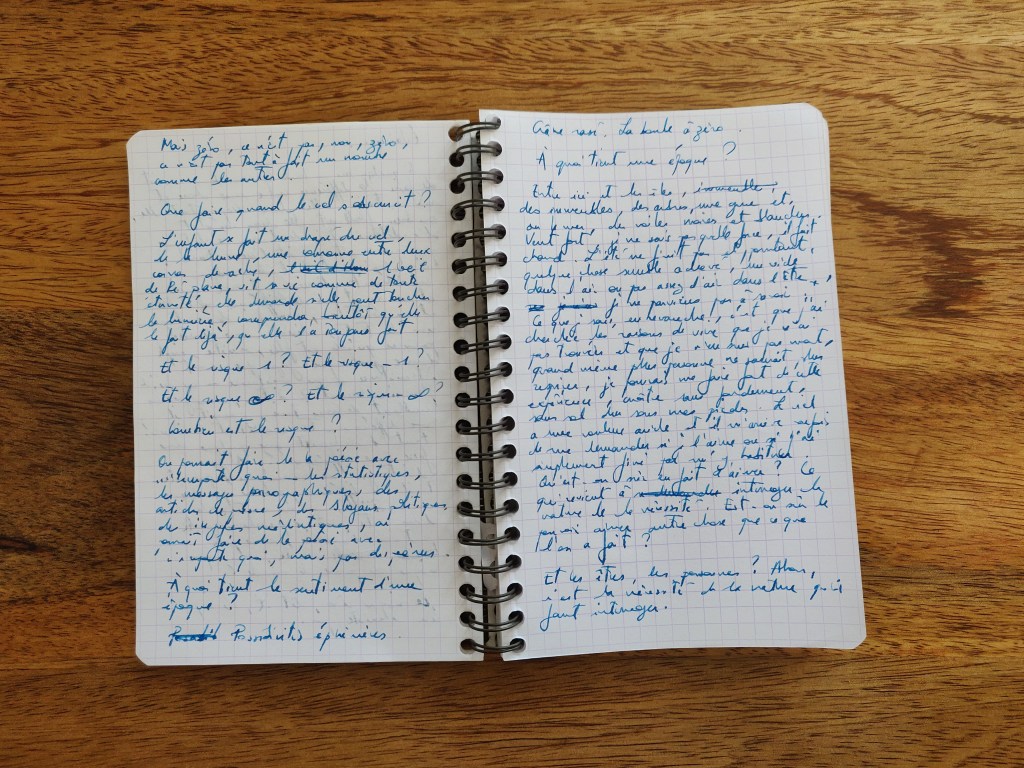 Mais zéro, ce n'est pas, non, zéro,
ce n'est pas tout à fait un nombre
comme les autres.
Que faire quand le ciel s'obscurcit ?
L'enfant fait un drapé du ciel,
de la lune, une entre deux
de
comme de toute
la lumière, plutôt qu'elle
le fait déjà, qu'elle l'a toujours fait
Et le risque 1 ? Et le risque - 1 ?
Et le risque ∞ ? Et le risque - ∞ ?
Combien est le risque ?
On pourrait faire de la poésie avec
n'importe quoi les statistiques,
les messages pornographiques, des
articles de presse, des slogans politiques
des
faire de la poésie avec
n'importe quoi, mais pas de poésies.
À quoi tient le sentiment d'une
époque ?
Possibilités éphémères.
Crâne rasé. La boule à zéro.
À quoi tient une époque ?
Entre ici et les îles, immeubles,
des immeubles, des arbres, une grue et,
sur la mer, des voiles noires et blanches.
Vent fort, je ne sais quelle force, il fait
chaud. L'été ne finit pas et, pourtant,
quelque chose semble achevé, un vide
dans l'air ou pas assez d'air dans l'Être,
je ne parviens pas à savoir.
Ce que je sais, en revanche, c'est que j'ai
cherché des raisons de vivre que je n'ai
pas trouvées et que je n'en suis pas mort,
quand même plus personne ne pouvait plus
respirer, je pourrais me faire fort de cette
expérience, sans fondement,
sans sol dur sous mes pieds. Le ciel
a une couleur et il m'arrive
de me demander si je l'aime ou si j'ai
simplement fini par m'y habituer.
Qu'est-on sûr en fait d'aimer ? Ce
qui revient à interroger la
nature de la nécessité. Est-on sûr de
pouvoir aimer autre chose que ce que
l'on a fait ?
Et les êtres, les personnes ? Alors,
c'est la nécessité de la nature qu'il
faut interroger.